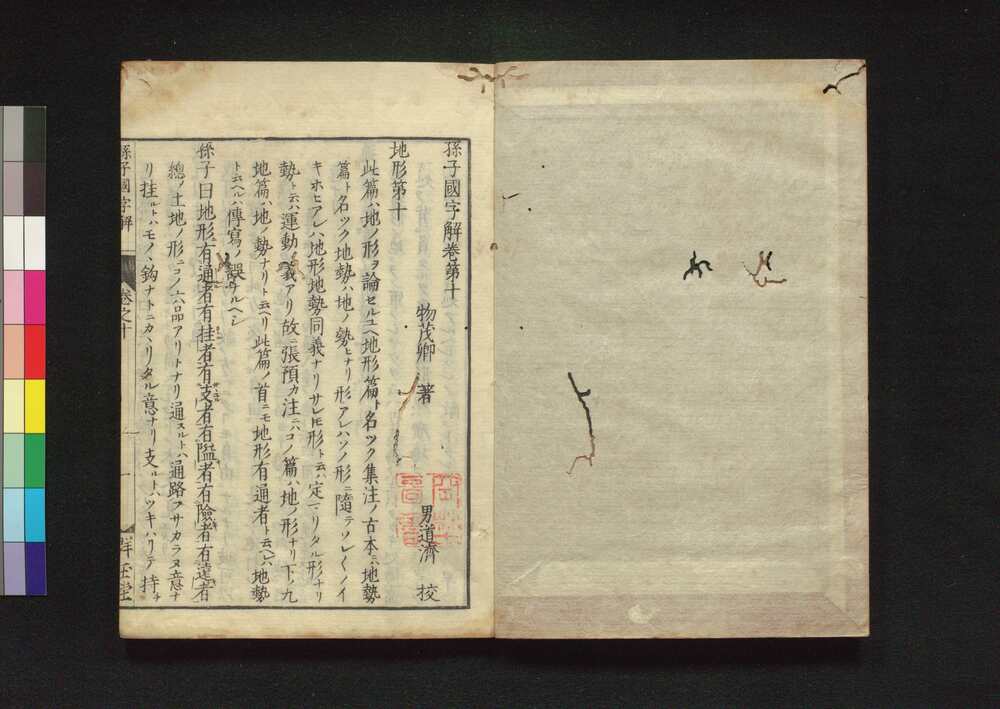 孫子國字解卷第十
物茂卿 著
男道濟 校
地形第十
此篇ハ地ノ形ヲ論セルユヘ地形篇ト名ツク集注ノ古本ニ地勢
篇ト名ツク地勢ハ地ノ勢ヒナリ形アレハソノ形ニ隨テソレ〱ノイ
キホヒアレハ地形地勢同義ナリサレトモ形ト云ハ定マリタル形ナリ
勢ト云ハ運動ノ義アリ故ニ張預カ注ニハコノ篇ハ地ノ形ナリ下ノ九
地篇ハ地ノ勢ナリト云ヘリ此篇ノ首ニモ地形有通者ト云ヘハ地勢
ト云ヘルハ傳寫ノ誤ナルヘシ
孫子曰地形有通者有挂者有支者有隘者有險者有遠者
總ノ土地ノ形ニコノ六品アリトナリ通スルトハ通路フサカラヌ意ナ
リ挂ルトハモノヽ鈎ナトニカヽリタル意ナリ支ルトハツキハリテ持チ
孫子國字解
卷之十
一